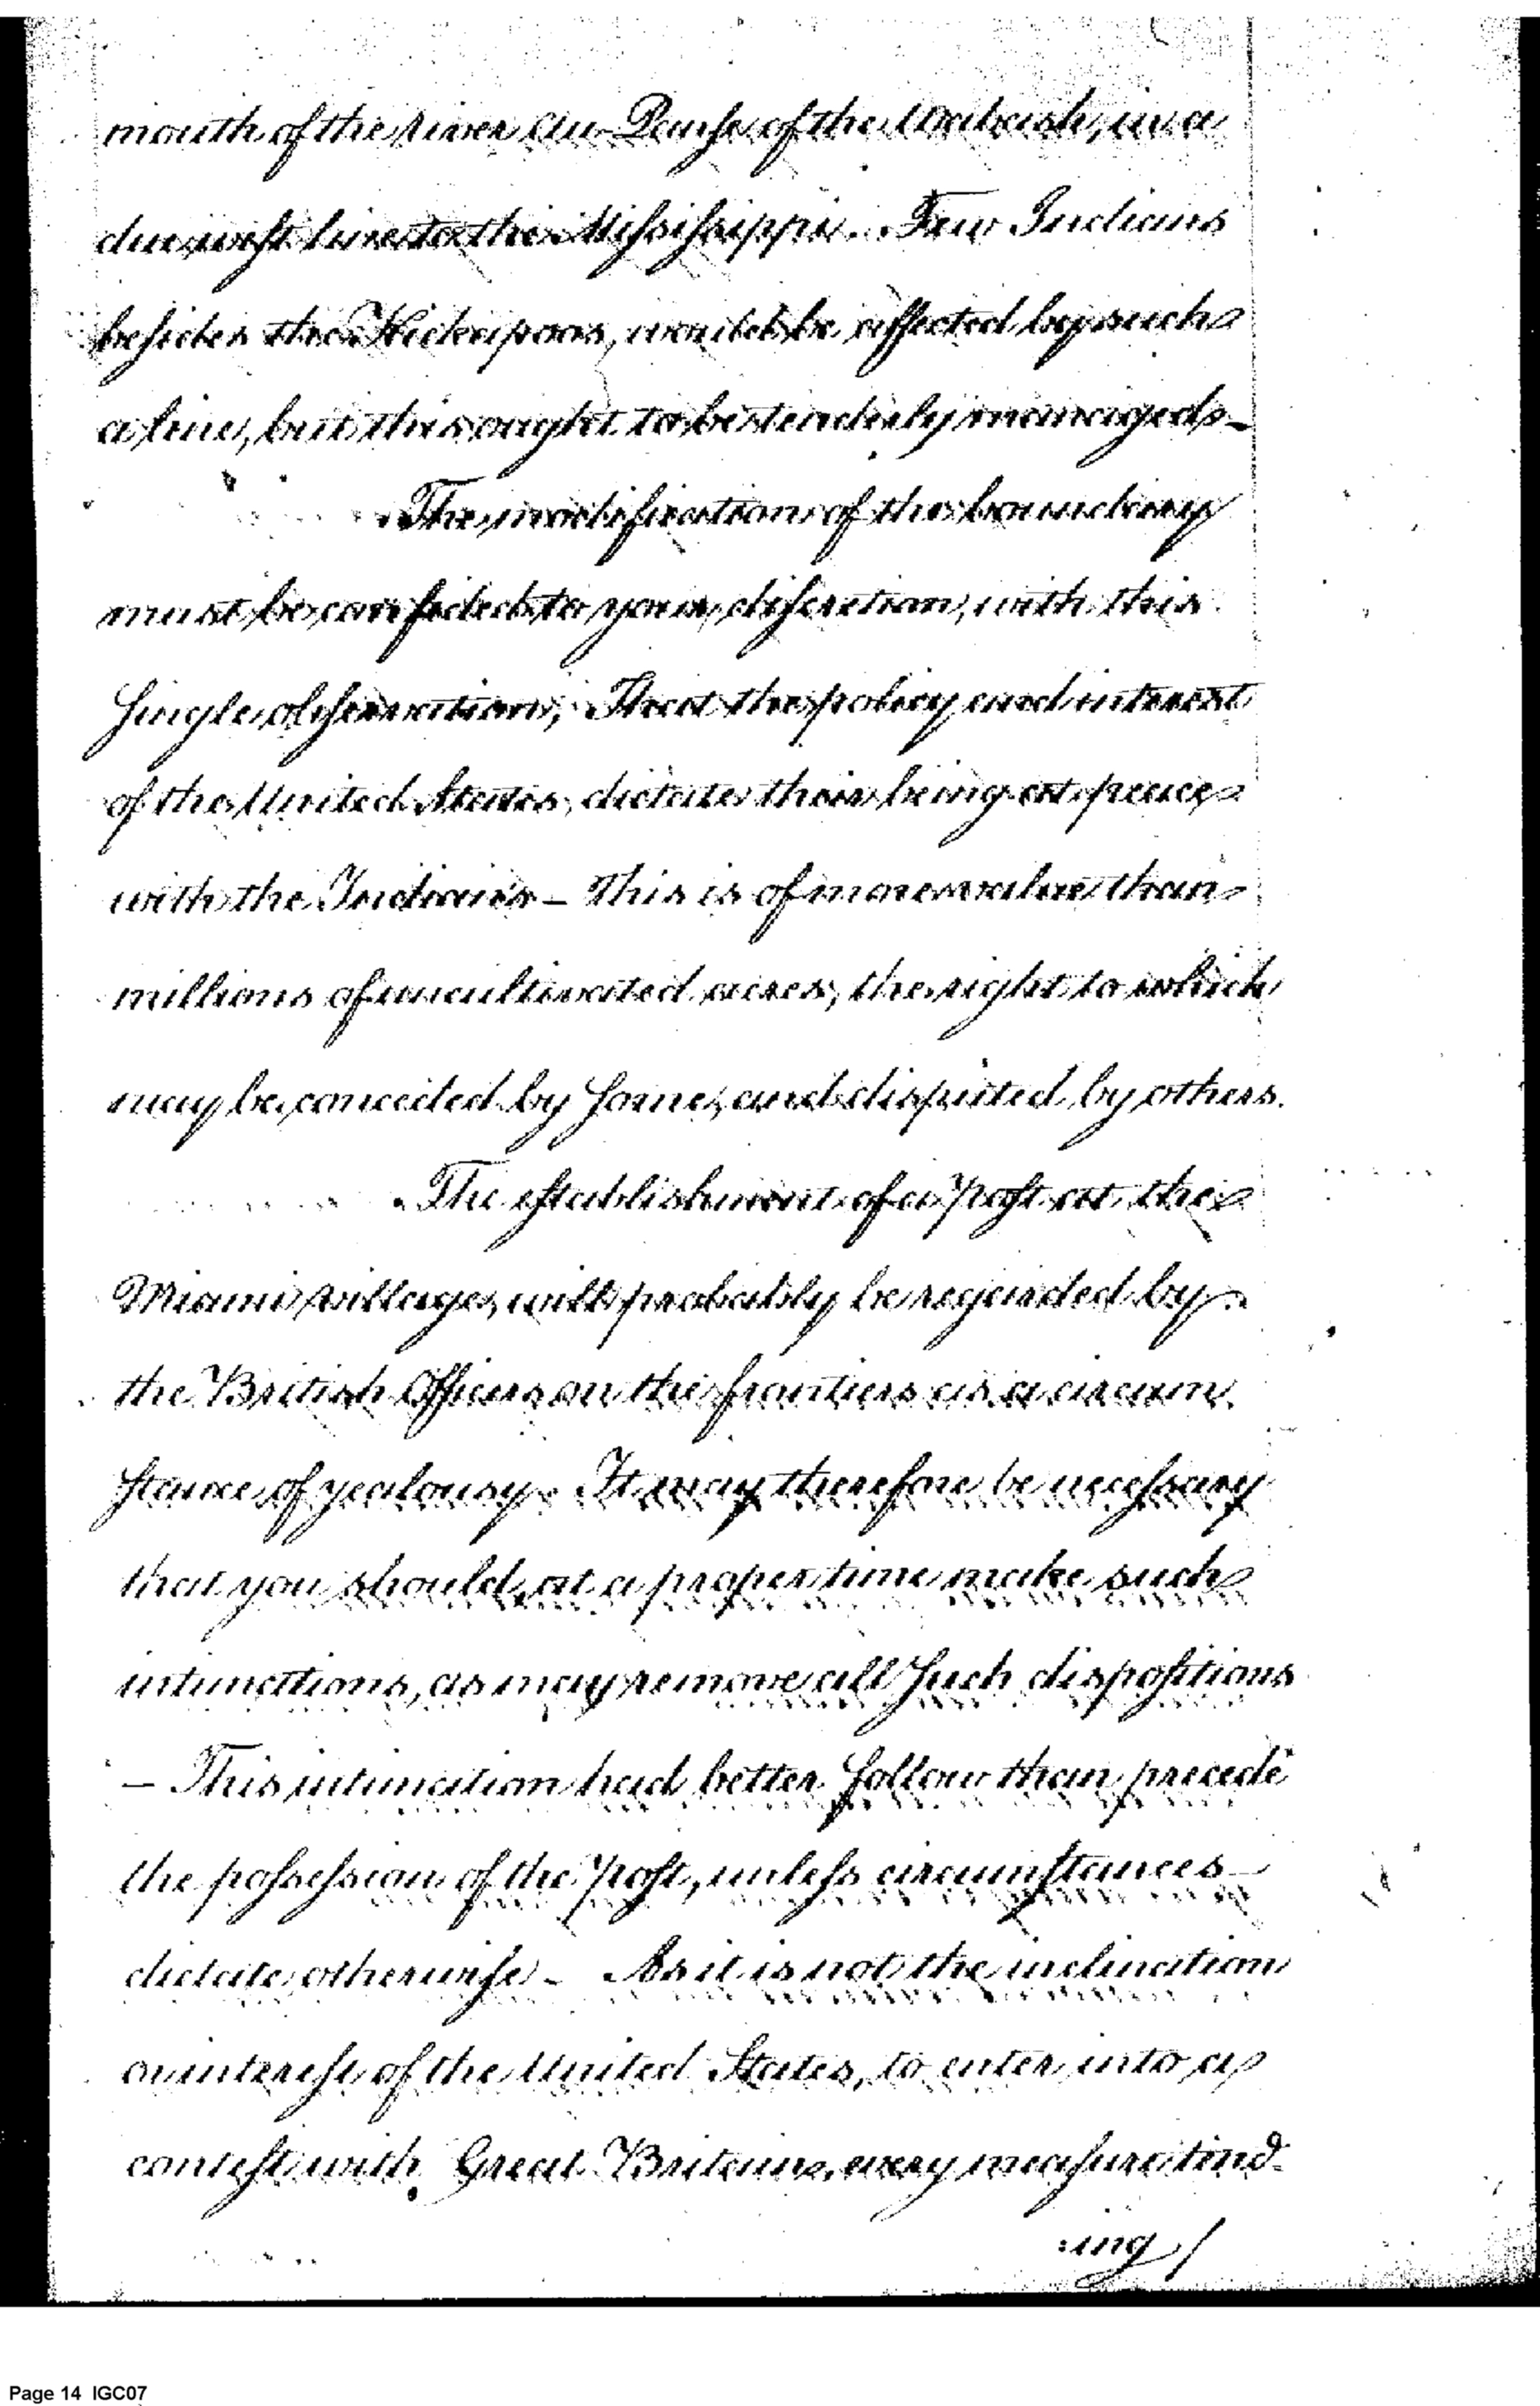 mouth of the river au-Panse of the Wabash, in a
due west line to the Mississippi. Few Indians
besides the Kickapoos, would be affected by such
a line, but this ought to be tenderly managed_
The modification of the boundary
must be confided to your discretion, with this
single observation; That the policy and interest
of the United States, dictate their being at peace
with the Indians – This is of more value than
millions of uncultivated acres, the right to which
may be conceeded by some, and disputed by others.
The establishment of a Post at the
Miami villages, will probably be regarded by
the British Officers on the frontiers as a circum
stance of jealousy. It may therefore be necessary
that you should, at a proper time make such
intimations, as may remove all such dispositions
– This intimation had better follow than precede
the possession of the Post, unless circumstances
dictate otherwise – As it is not the inclination
or interest of the United States, to enter into a
contest with Great Britain, every measure tend-
:ing /
Page 14 IGC07